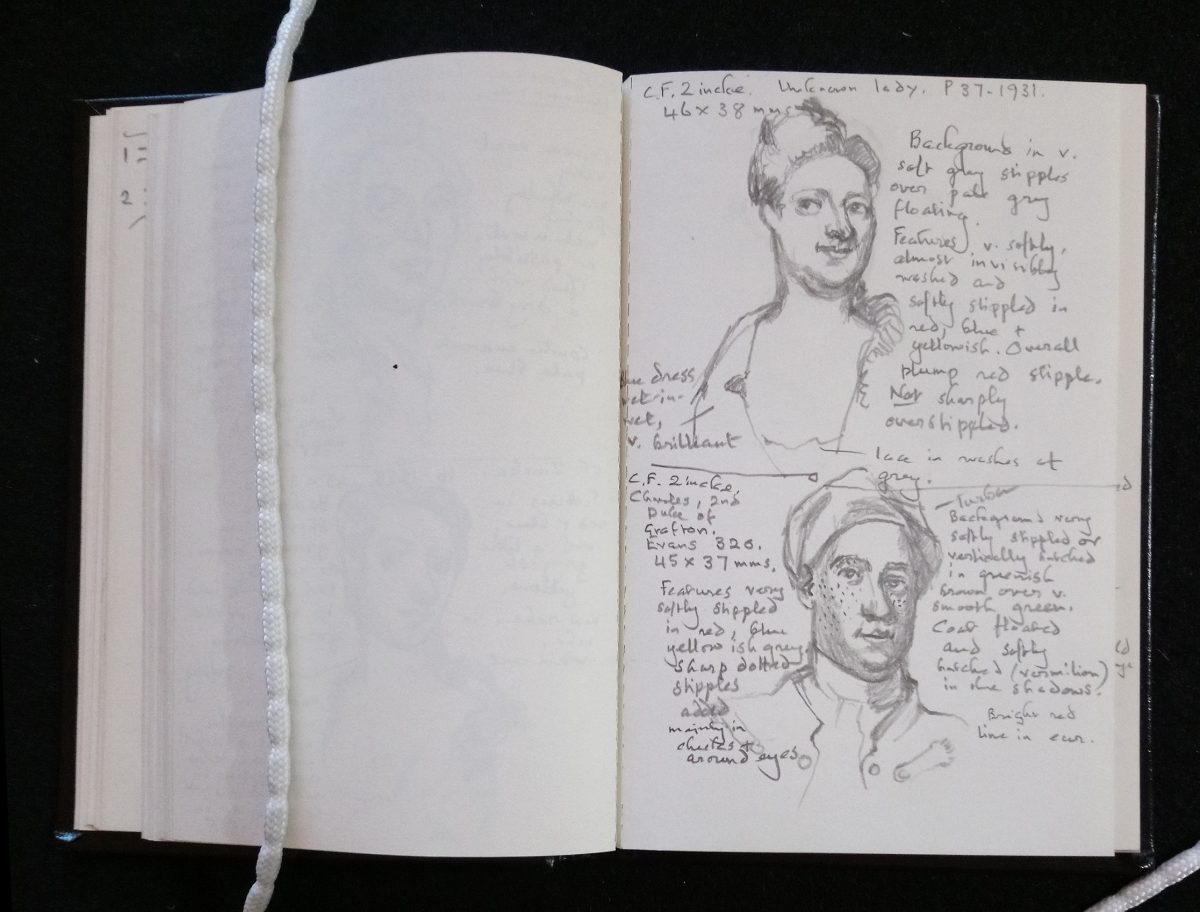 C.F. Zincke. Unknown lady. P 37-1931.
46 x 38 mms
Background in v.
soft grey stipples
over pale grey
floating.
Features v. softly,
almost invisibly
washed and
softly stippled in
red, blue +
yellowish. Overall
plump red stipple.
Not sharply
overstippled.
dress
wet-in-
wet,
v. brilliant
lace in washes of
grey.
C.F. Zincke,
Charles, 2nd
Duke of
Grafton.
Evans 326.
45 x 37 mms.
Features very
softly stippled
in red, blue
yellowish grey.
sharp dotted
stipples
added
mainly in
cheeks +
around eyes
Turban
Background very
softly stippled or
vertically hatched
in greenish
brown over v.
smooth green.
Coat floated
and softly
hatched (vermilion)
in the shadows.
Bright red
line in ear.
1
2